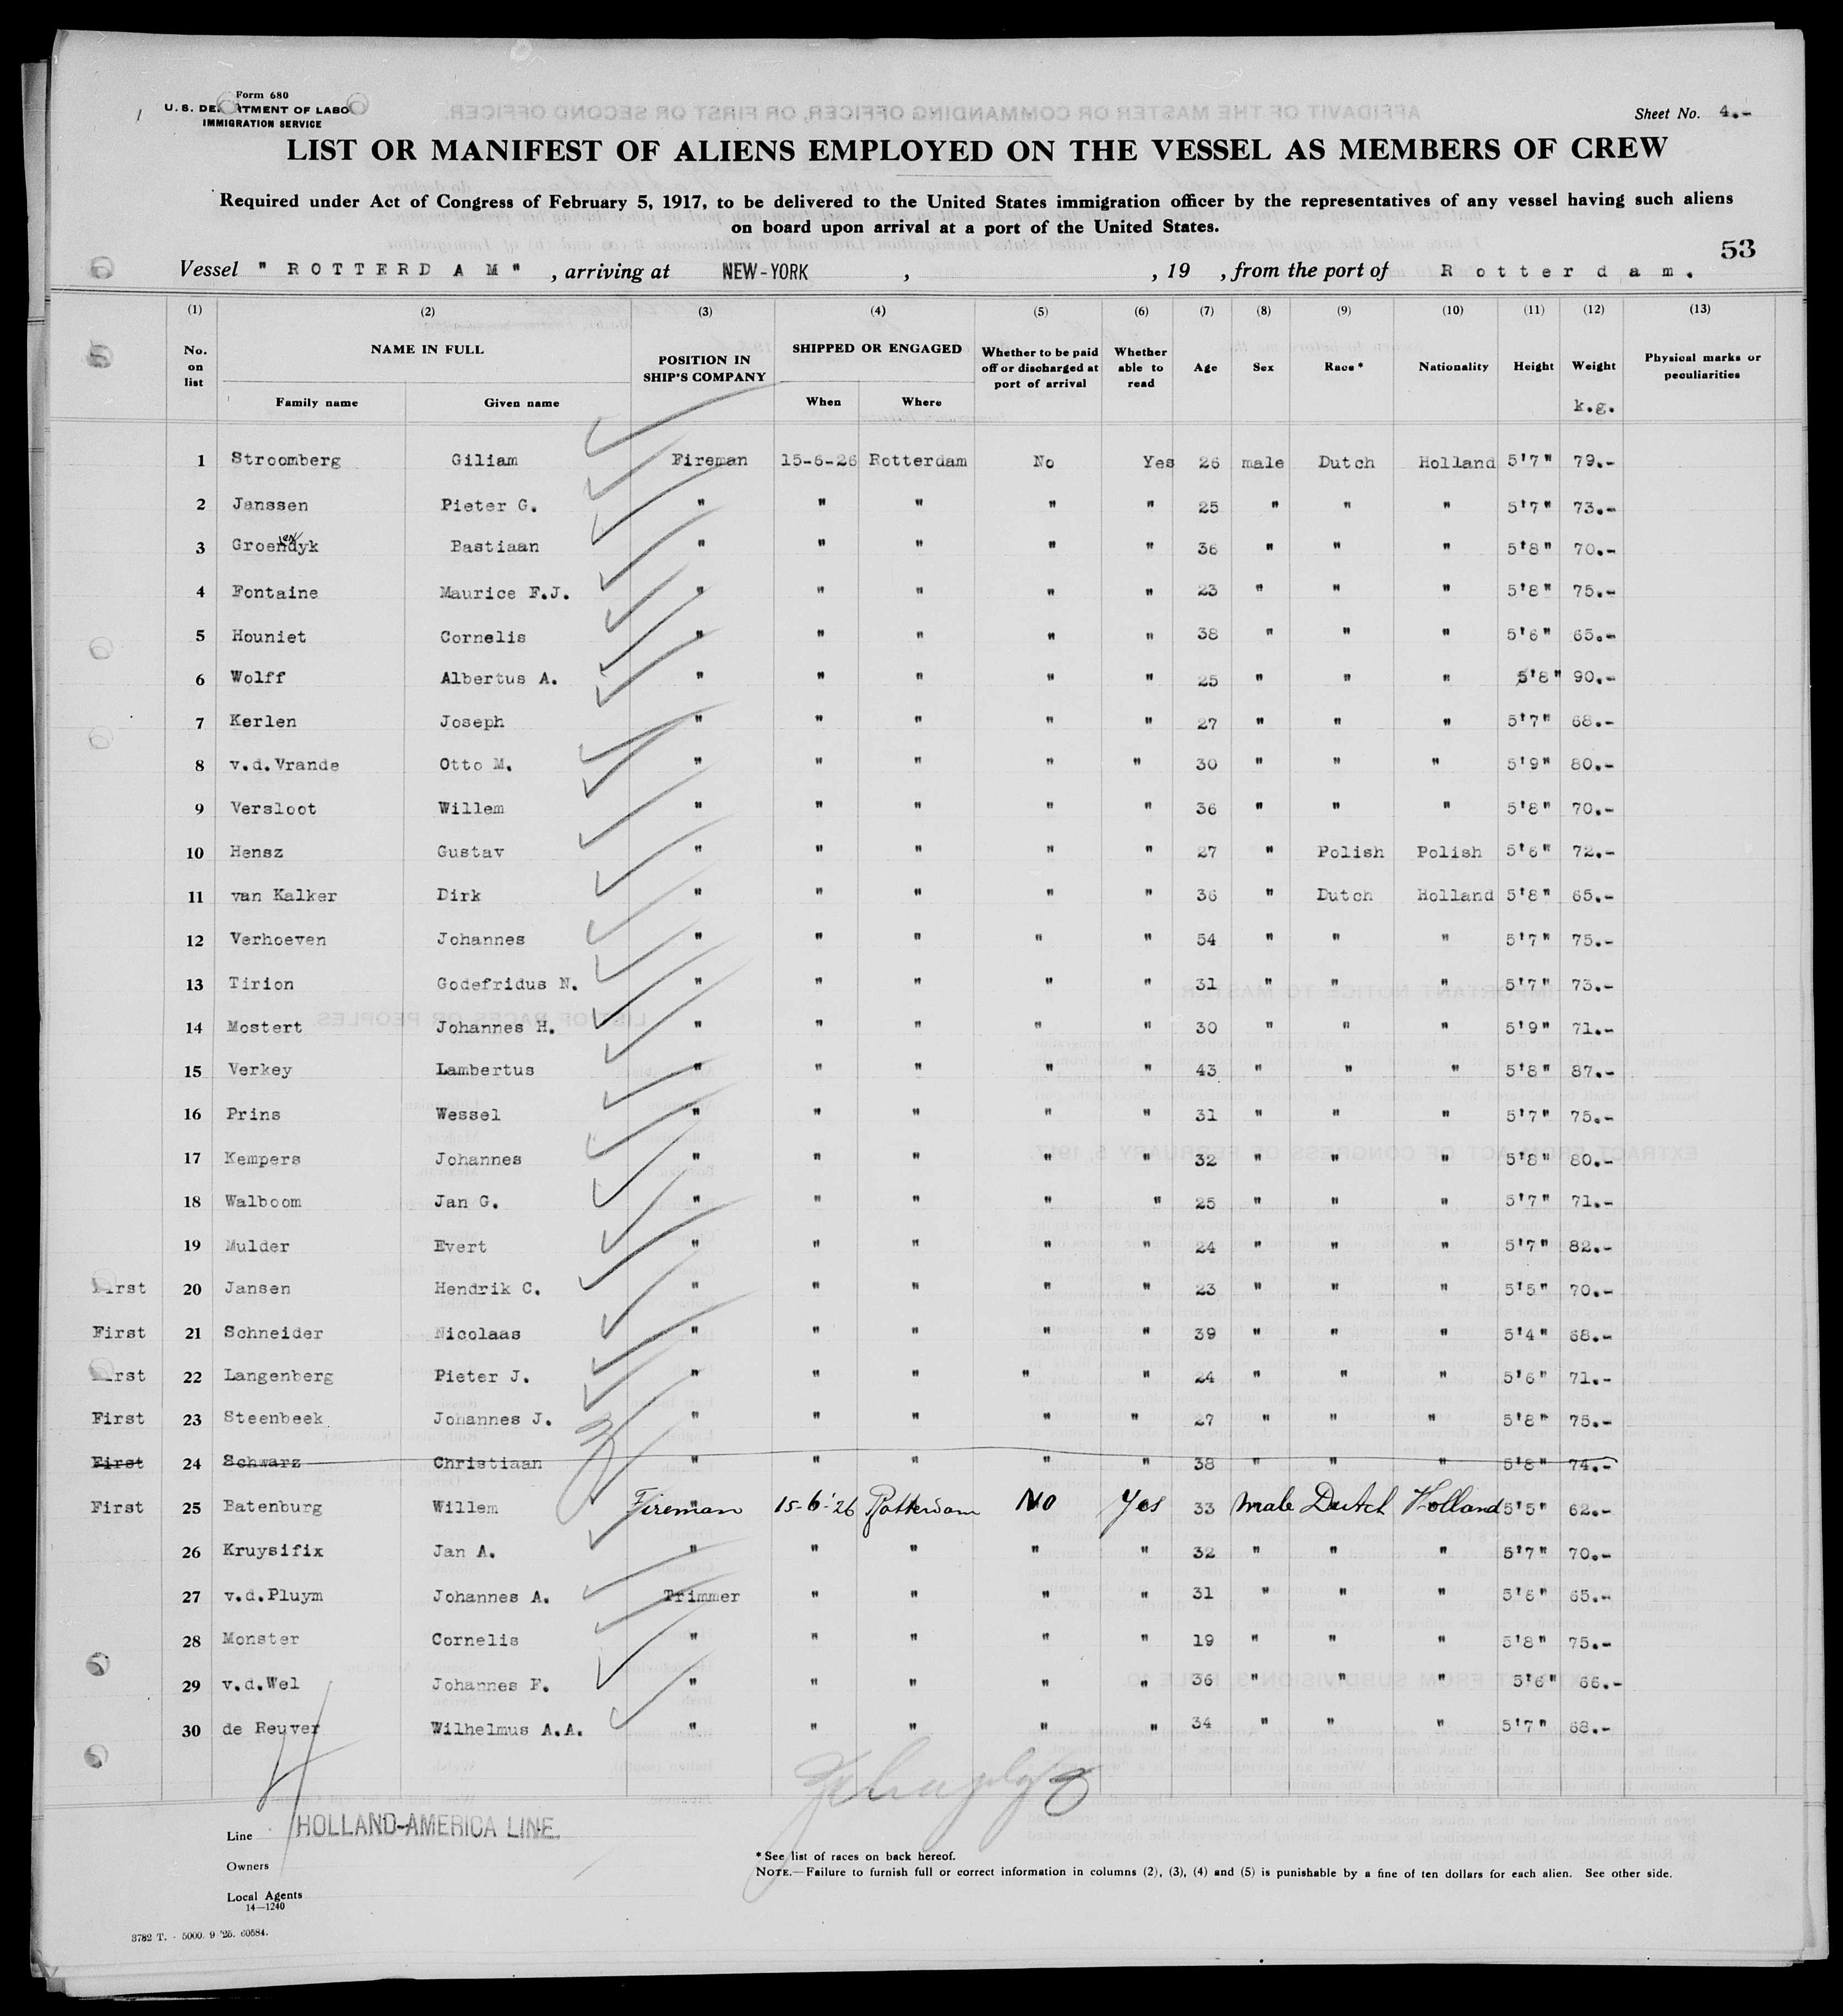 Form 680
U. S. DEPARTMENT OF LABOR
IMMIGRATION SERVICE
Sheet No. 4.-
LIST OR MANIFEST OF ALIENS EMPLOYED ON THE VESSEL AS MEMBERS OF CREW
Required under Act of Congress of February 5, 1917, to be delivered to the United States immigration officer by the representatives of any vessel having such aliens
on board upon arrival at a port of the United States.
53
Vessel " ROTTERDAM " , arriving at NEW-YORK , , 19 , from the port of Rotterdam.
(1) (2) (3) (4) (5) (6) (7) (8) (9) (10) (11) (12) (13)
No. on list NAME IN FULL POSITION IN SHIP'S COMPANY SHIPPED OR ENGAGED Whether to be paid off or discharged at port of arrival Whether able to read Age Sex Race* Nationality Height Weight Physical marks or peculiarities
Family name Given name When Where k.g.
1 Stroomberg Giliam Fireman 15-6-26 Rotterdam No Yes 26 male Dutch Holland 5'7" 79.-
2 Janssen Pieter G. " " " " " 25 " " " 5'7" 73.-
3 Groendyk Bastiaan " " " " " 36 " " " 5'8" 70.-
4 Fontaine Maurice F.J. " " " " " 23 " " " 5'8" 75.-
5 Houniet Cornelis " " " " " 38 " " " 5'6" 65.-
6 Wolff Albertus A. " " " " " 25 " " " 5'8" 90.-
7 Kerlen Joseph " " " " " 27 " " " 5'7" 68.-
8 v.d.Vrande Otto M. " " " " " 30 " " " 5'9" 80.-
9 Versloot Willem " " " " " 36 " " " 5'8" 70.-
10 Hensz Gustav " " " " " 27 " Polish Polish 5'6" 72.-
11 van Kalker Dirk " " " " " 36 " Dutch Holland 5'8" 65.-
12 Verhoeven Johannes " " " " " 54 " " " 5'7" 75.-
13 Tirion Godefridus N. " " " " " 31 " " " 5'7" 73.-
14 Mostert Johannes H. " " " " " 30 " " " 5'9" 71.-
15 Verkey Lambertus " " " " " 43 " " " 5'8" 87.-
16 Prins Wessel " " " " " 31 " " " 5'7" 75.-
17 Kempers Johannes " " " " " 32 " " " 5'8" 80.-
18 Walboom Jan G. " " " " " 25 " " " 5'7" 71.-
19 Mulder Evert " " " " " 24 " " " 5'7" 82.-
First 20 Jansen Hendrik C. " " " " " 23 " " " 5'5" 70.-
First 21 Schneider Nicolaas " " " " " 39 " " " 5'4" 68.-
First 22 Langenberg Pieter J. " " " " " 24 " " " 5'6" 71.-
First 23 Steenbeek Johannes J. " " " " " 27 " " " 5'8" 75.-
First 24 Schwarz Christiaan " " " " " 38 " " " 5'8" 74.-
First 25 Batenburg Willem Fireman 15-6-'26 Rotterdam No Yes 33 male Dutch Holland 5'5" 62.-
26 Kruysifix Jan A. " " " " " 32 " " " 5'7" 70.-
27 v.d.Pluym Johannes A. Trimmer " " " " 31 " " " 5'6" 65.-
28 Monster Cornelis " " " " " 19 " " " 5'8" 75.-
29 v.d.Wel Johannes F. " " " " " 36 " " " 5'6" 66.-
30 de Reuver Wilhelmus A.A. " " " " " 34 " " " 5'7" 68.-
Line HOLLAND-AMERICA LINE.
Owners
Local Agents
14—1240
* See list of races on back hereof.
NOTE.—Failure to furnish full or correct information in columns (2), (3), (4) and (5) is punishable by a fine of ten dollars for each alien. See other side.
3782 T. - 5000. 9 '25. 60584.